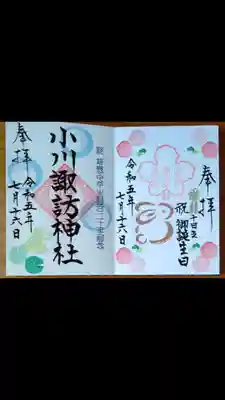 奉拝
祝御誕生日
令和五年
七月十六日
小川諏訪神社
奉拝
令和五年
七月十六日